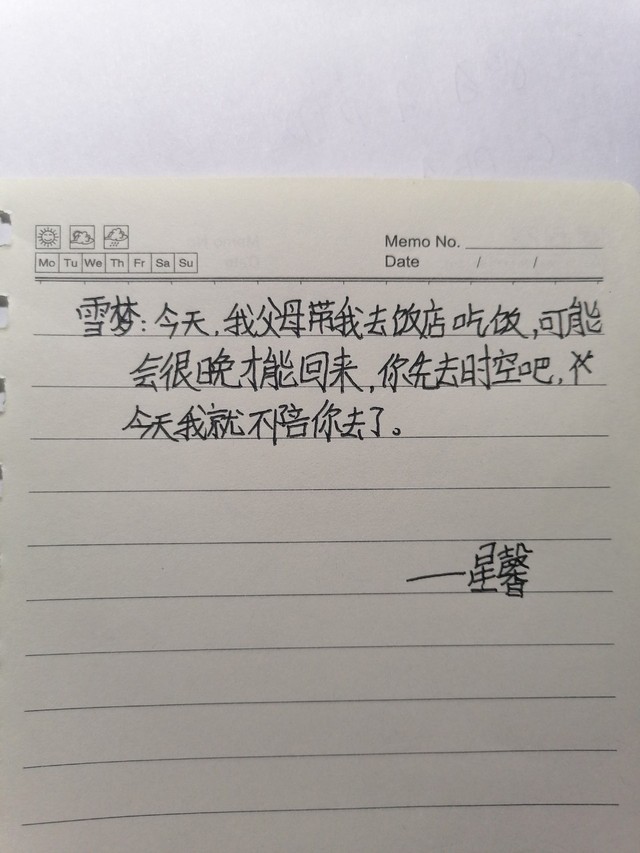 Memo No.
Mo Tu We Th Fr Sa Su
Date / /
雪梦:今天,我父母带我去饭店吃饭,可能
会很晚才能回来,你先去时空吧,
今天我就不陪你去了。
——星馨